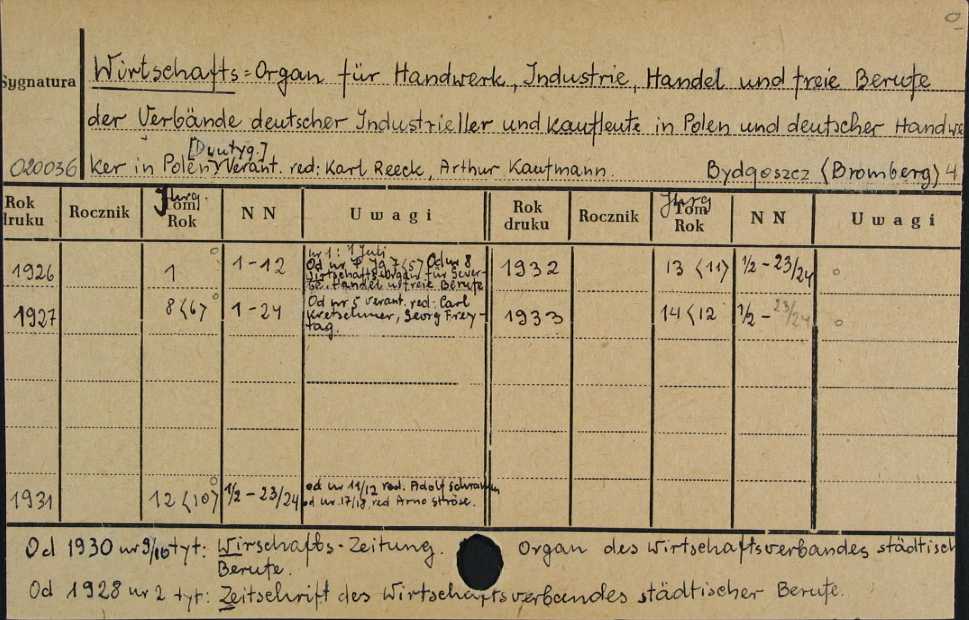 Sygnatura
Wirtschafts=Organ für Handwerk, Industrie, Handel und freie Berufe
der Verbände deutscher Industrieller und Kaufleute in Polen und deutscher Handwe
[Dwutyg.]
020036 ker in Polen verant. red: Karl Reeck, Arthur Kaufmann. Bydgoszcz (Bromberg) 4
Rok druku Rocznik Jhrg. Tom Rok N N Uwagi Rok druku Rocznik Jhrg Tom Rok N N Uwagi
1926 1 1-12 nr 1: 1 Juli 1932 13 <11> 1/2-23/24
Od nr Jg 7 <5> Od nr 8
Wirtschafts-Organ für Gewer-
be, Handel u. freie Berufe
1927 8<6> 1-24 Od nr 5 verant. red: Carl 1933 14<12 1/2-23/24
Kretschmer, Georg Frey-
tag.
1931 12<10> 1/2-23/24 od nr 11/12 red. Adolf Schramm
od nr. 17/18 red Arno Ströse.
Od 1930 nr 9/10 tyt: Wirschafts-Zeitung. Organ des Wirtschaftsverbandes städtisch
Berufe.
Od 1928 nr 2 tyt: Zeitschrift des Wirtschaftsverbandes städtischer Berufe.